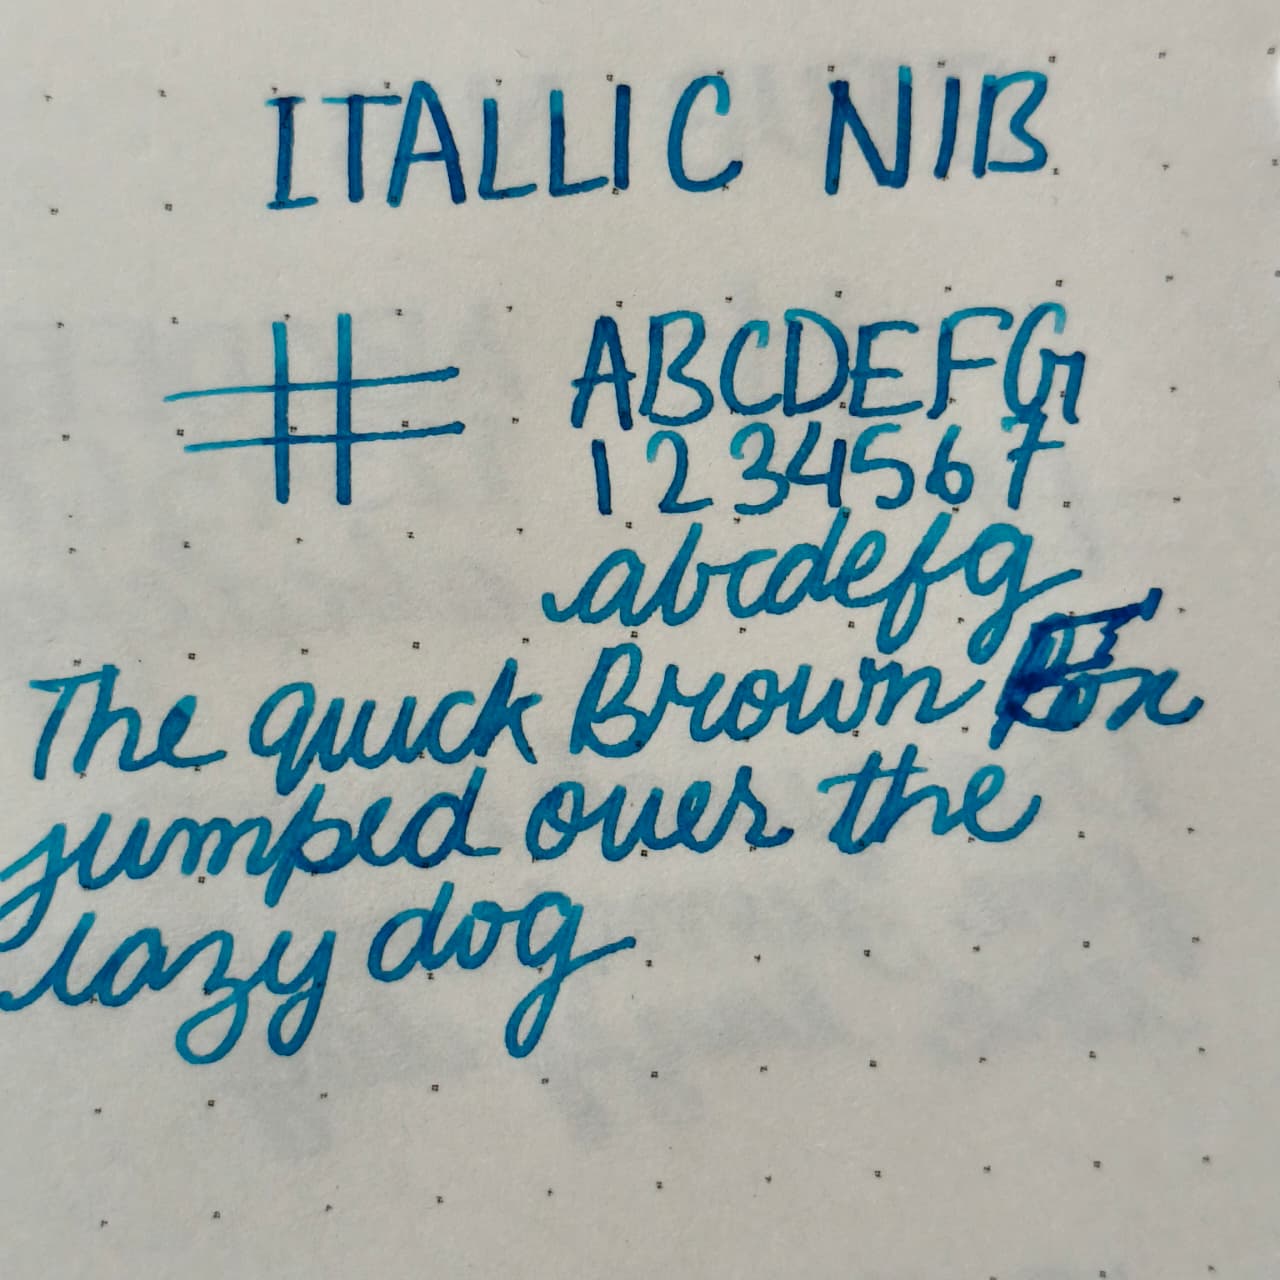 ITALLIC NIB
#
ABCDEFG
1234567
abcdefg
The quick Brown Fox
jumped over the
lazy dog